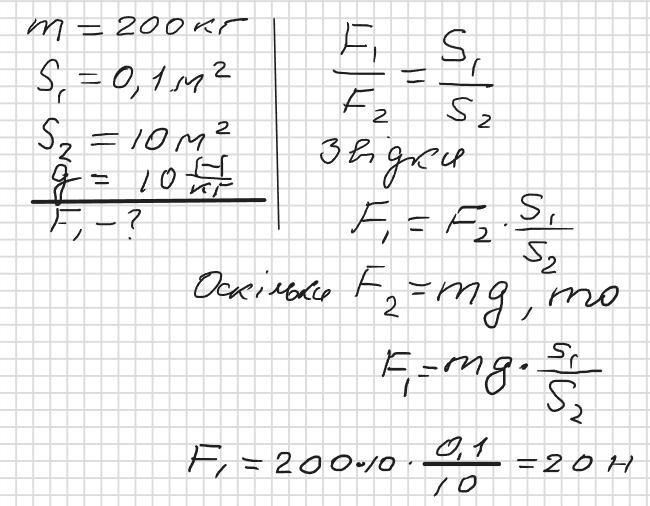 m = 200 кг
S₁ = 0,1 м²
S₂ = 10 м²
g = 10 Н/кг
F₁ - ?
F₁/F₂ = S₁/S₂
Звідки
F₁ = F₂ · S₁/S₂
Оскільки F₂ = mg, то
F₁ = mg · S₁/S₂
F₁ = 200·10 · 0,1/10 = 20 Н